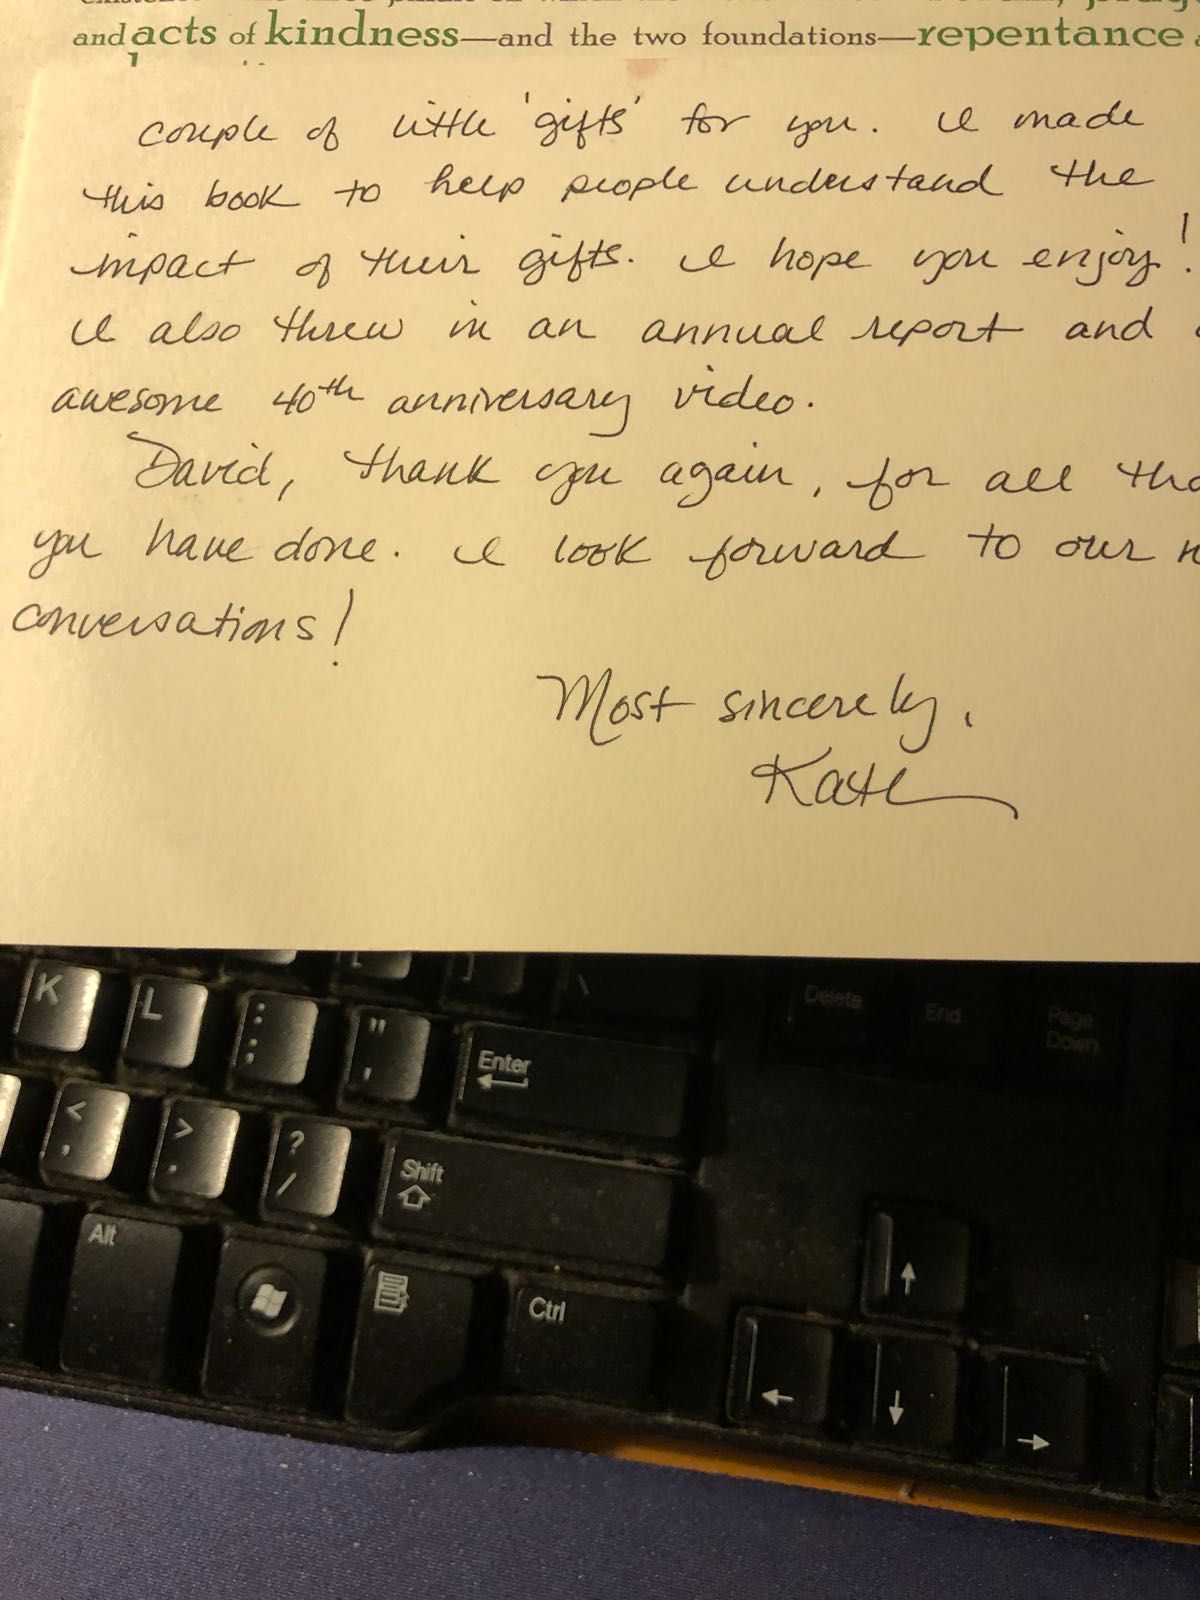 and acts of kindness—and the two foundations—repentance
couple of little 'gifts' for you. I made
this book to help people understand the
impact of their gifts. I hope you enjoy!
I also threw in an annual report and
awesome 40th anniversary video.
David, thank you again, for all tha
you have done. I look forward to our n
conversations!
Most sincerely,
Kate
K L : ; " ' Enter
Delete End Page Down
< , > . ? / Shift
Alt Ctrl